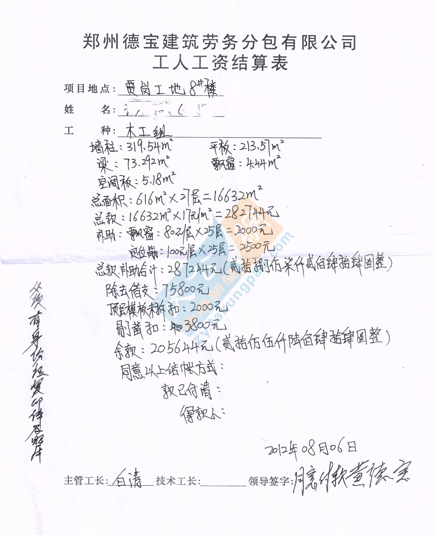 郑州德宝建筑劳务分包有限公司
工人工资结算表
项目地点：贾岗工地8#楼
姓 名：
工 种：木工组
墙柱：319.54m² 平板：213.57m²
梁：73.292m² 飘窗：4.44m²
空调板：5.18m²
总面积：616m²×27层＝16632m²
总款：16632m²×17元/m²＝282744元
补助：飘窗：80元/层×25层＝2000元
100元/层×25层＝2500元
总款补助合计：287244元
除去借支：75800元
顶层模板未拆扣：2000元
扣：3800元
余款：205644元
同意以上结帐方式：
款已付清：
得款人：
2012年08月06日
主管工长：白清 技术工长： 领导签字：同意付款
身份证复印件